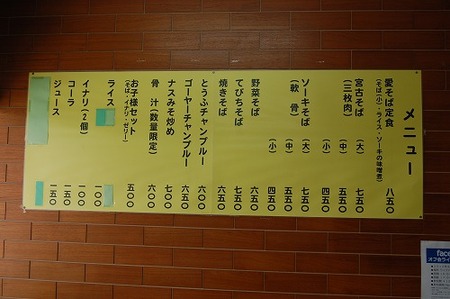 メニュー
愛そば定食 八五〇
(そば(小)・ライス・ソーキの味噌煮)
宮古そば (大) 七五〇
(三枚肉) (中) 五五〇
(小) 四五〇
ソーキそば (大) 七五〇
(軟骨) (中) 五五〇
(小) 四五〇
野菜そば 六五〇
てびちそば 七五〇
焼きそば 六五〇
とうふチャンプルー 六〇〇
ゴーヤーチャンプルー 六五〇
ナスみそ炒め 七〇〇
骨汁(数量限定) 六〇〇
お子様セット 五〇〇
(そば、イナリ、ゼリー)
ライス
イナリ(2個) 一〇〇
コーラ 一五〇
ジュース 一五〇
face